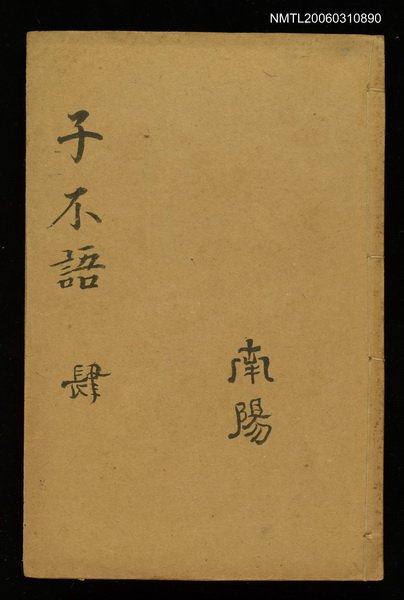 NMTL20060310890
子不語 肆
南陽